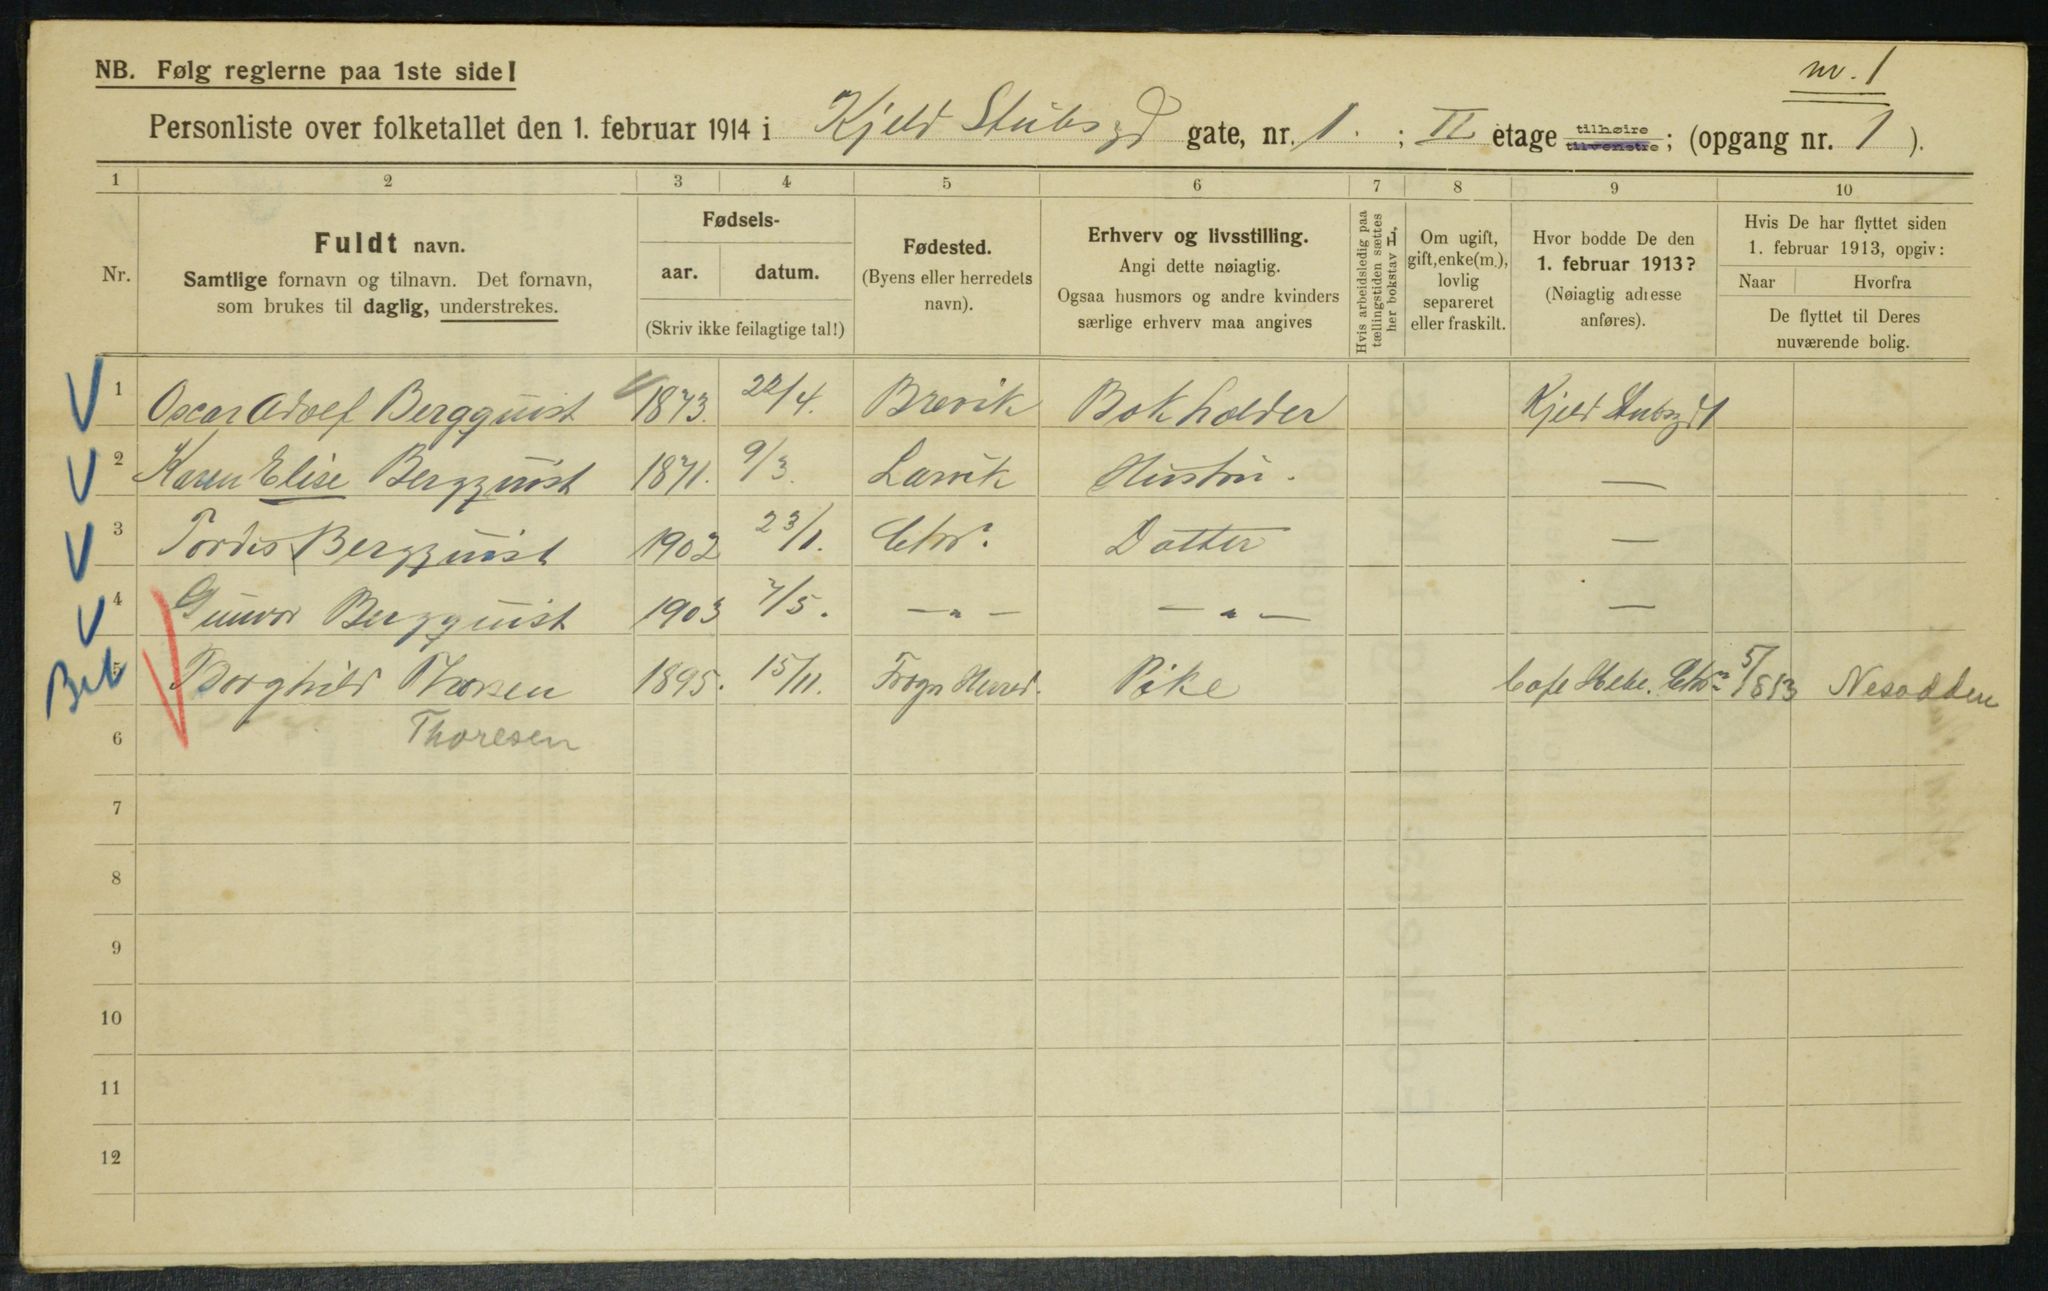 NB. Følg reglerne paa 1ste side!
nr. 1
Personliste over folketallet den 1. februar 1914 i Kjeld Stubsgd gate, nr. 1. ; II etage tilhøire tilvenstre ; (opgang nr. 1 ).
1 2 3 4 5 6 7 8 9 10
Nr.
Fuldt navn.
Samtlige fornavn og tilnavn. Det fornavn,
som brukes til daglig, understrekes.
Fødsels-
aar. datum.
(Skriv ikke feilagtige tal!)
Fødested.
(Byens eller herredets
navn).
Erhverv og livsstilling.
Angi dette nøiagtig.
Ogsaa husmors og andre kvinders
særlige erhverv maa angives
Hvis arbeidsledig paa
tællingstiden sættes
her bokstav L,
Om ugift,
gift, enke(m.),
lovlig
separeret
eller fraskilt.
Hvor bodde De den
1. februar 1913?
(Nøiagtig adresse
anføres).
Hvis De har flyttet siden
1. februar 1913, opgiv:
Naar Hvorfra
De flyttet til Deres
nuværende bolig.
1 Oscar Adolf Bergquist 1873. 22/4. Brevik Bokholder Kjeld Stubsgd 1
2 Karen Elise Bergquist 1871. 9/3. Larvik Hustru. —
3 Tordis Bergquist 1902 23/1. Chr. Datter —
4 Gunvor Bergquist 1903 7/5. — " — — " — —
5 Borghild Thorsen 1895. 15/11. Frogn Herred. Pike Cafe Hebe. Chr. 5/8 13 Nesodden
6 Thoresen
7
8
9
10
11
12